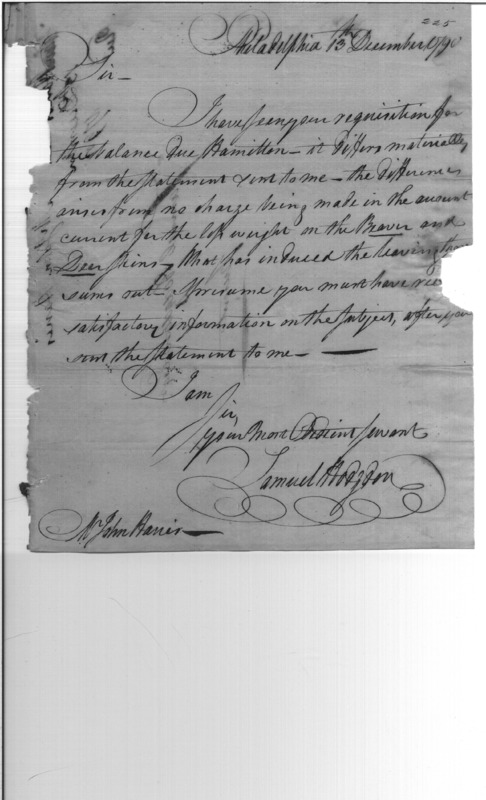 225
Philadelphia 13th December 1798
Sir —
I have seen your requisition for
the balance due Hamilton — it differs materially
from the statement sent to me — the difference
arises from no charge being made in the account
current for the loss weight on the Beaver and
Deer skins — What has induced the leaving
sums out — I presume you must have rec
satisfactory information on the subject, after you
sent the statement to me —
I am
Sir
your most Obedient Servant
Samuel Hodgdon
Mr John Harris —